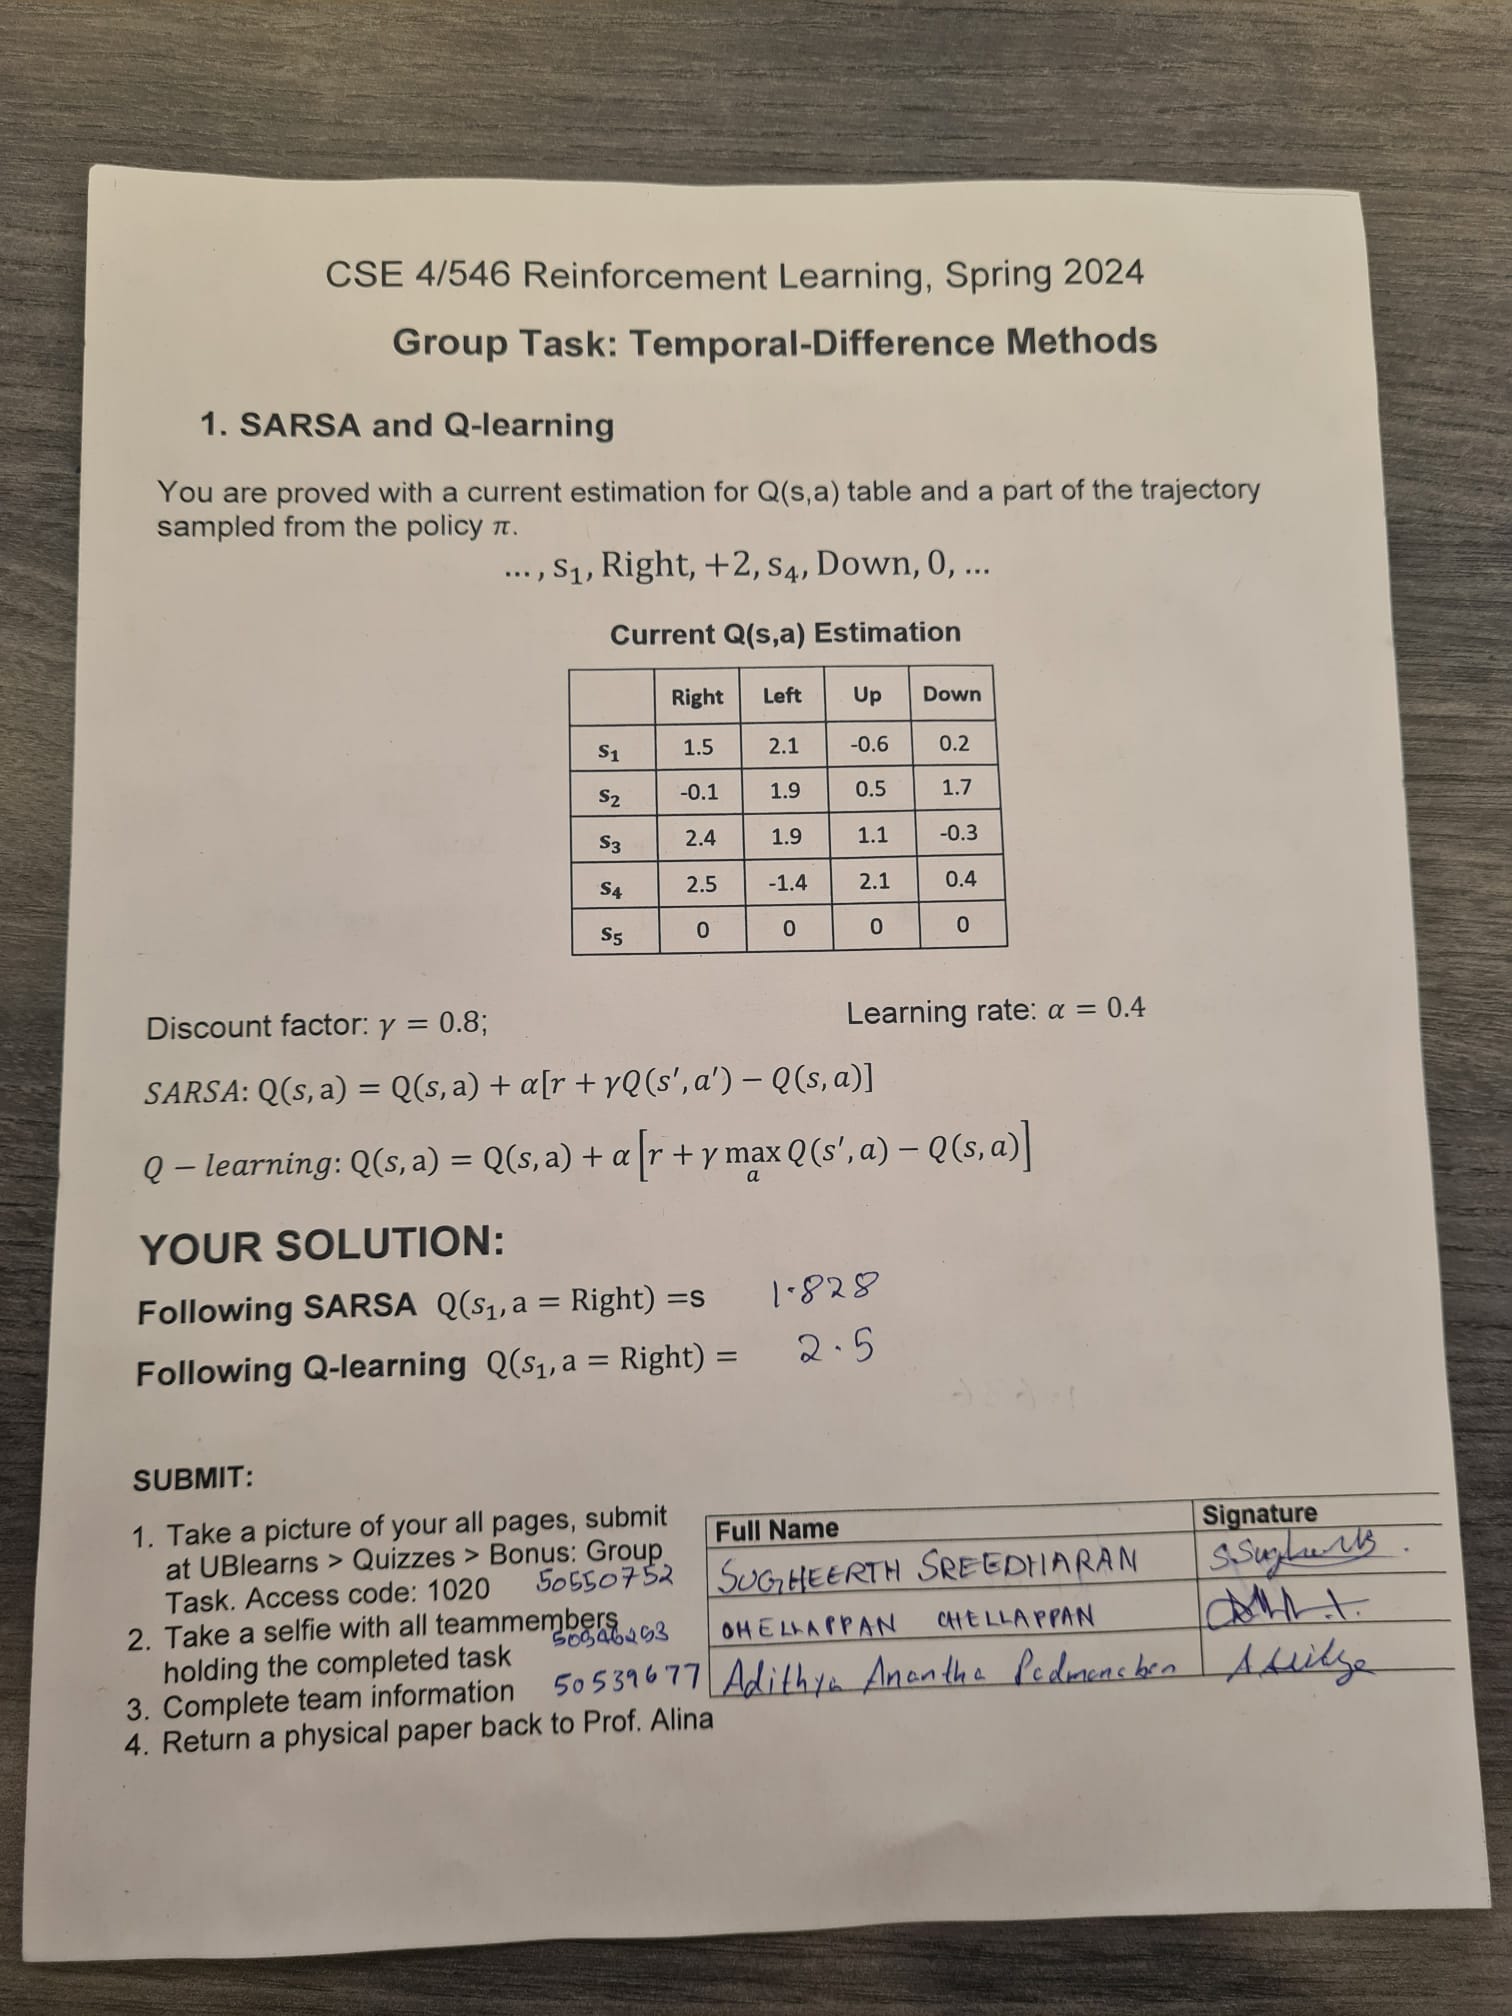 CSE 4/546 Reinforcement Learning, Spring 2024
Group Task: Temporal-Difference Methods
1. SARSA and Q-learning
You are proved with a current estimation for Q(s,a) table and a part of the trajectory
sampled from the policy π.
..., s₁, Right, +2, s₄, Down, 0, ...
Current Q(s,a) Estimation
Right Left Up Down
s₁ 1.5 2.1 -0.6 0.2
s₂ -0.1 1.9 0.5 1.7
s₃ 2.4 1.9 1.1 -0.3
s₄ 2.5 -1.4 2.1 0.4
s₅ 0 0 0 0
Discount factor: γ = 0.8; Learning rate: α = 0.4
SARSA: Q(s, a) = Q(s, a) + α[r + γQ(s′, a′) − Q(s, a)]
Q − learning: Q(s, a) = Q(s, a) + α [r + γ max Q(s′, a) − Q(s, a)]
a
YOUR SOLUTION:
Following SARSA Q(s₁, a = Right) =s 1.828
Following Q-learning Q(s₁, a = Right) = 2.5
SUBMIT:
1. Take a picture of your all pages, submit
at UBlearns > Quizzes > Bonus: Group
Task. Access code: 1020
2. Take a selfie with all teammembers
holding the completed task
3. Complete team information
4. Return a physical paper back to Prof. Alina
Full Name Signature
50550752 SUGHEERTH SREEDHARAN
CHELLAPPAN CHELLAPPAN
50539677 Adithya Anantha Padmanaban